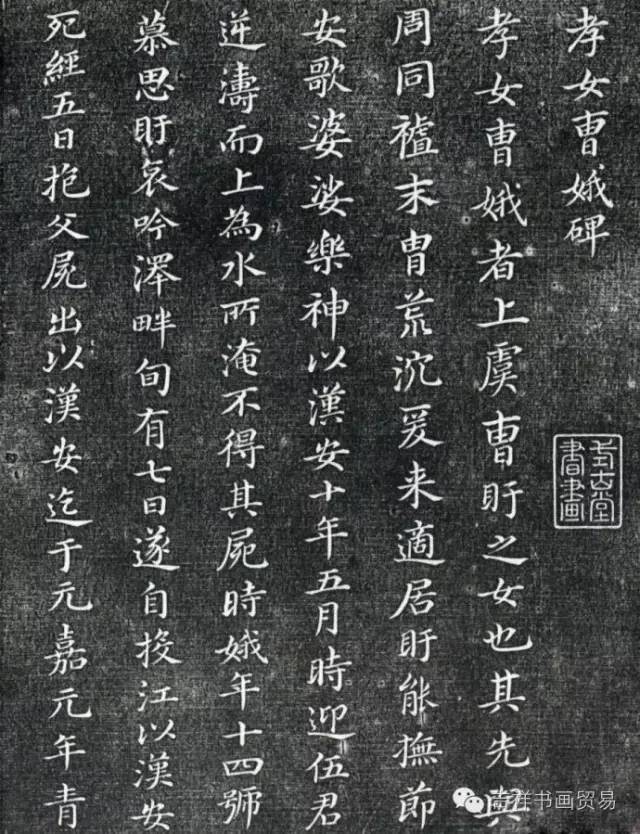 孝女曹娥碑
孝女曹娥者上虞曹盱之女也其先與
周同末胄荒沈爰来適居盱能撫節
安歌婆娑樂神以漢安十年五月時迎伍君
逆濤而上為水所淹不得其屍時娥年十四號
慕思盱哀吟澤畔旬有七日遂自投江以漢安
死經五日抱父屍出以漢安迄于元嘉元年青
古堂
書畫
吉祥书画贸易